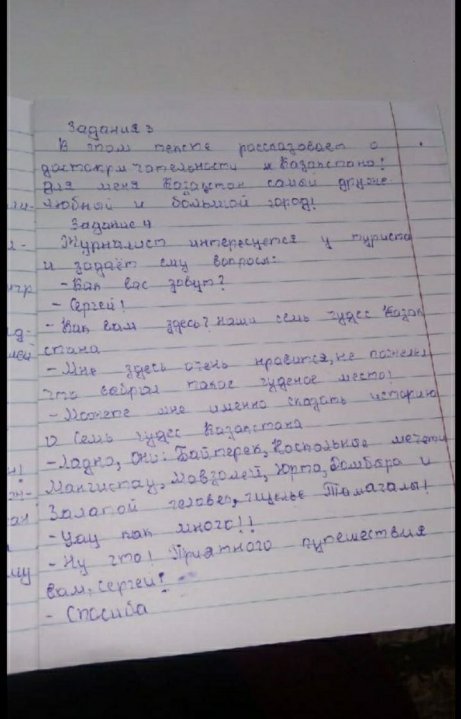 Задания 3
В этом тексте рассказовает о
достокрмчательности м Казахстана!
Для меня Казахстан самый друже
любной и большой город!
Задание 4
Журналист интересуется у туриста
и задаёт ему вопрося:
- Как вас зовут?
- Сергей!
- Как вам здесь? наши семь чудес Казах
стана
- Мне здесь очень нравится, не пожелел
что войрал такое чуденое место!
- Можете мне именно сказать историю
о семь чудес Казахстана
- Ладно, Они: Байтерек, Коспольное мечети
Мангистау, Мовзолей, Юрта, Домбыра и
Залатой человек, ущелье Тамагалы!
- Уау как много!!
- Ну что! Приятного путешествия
вам, Сергей!
- Спасиба